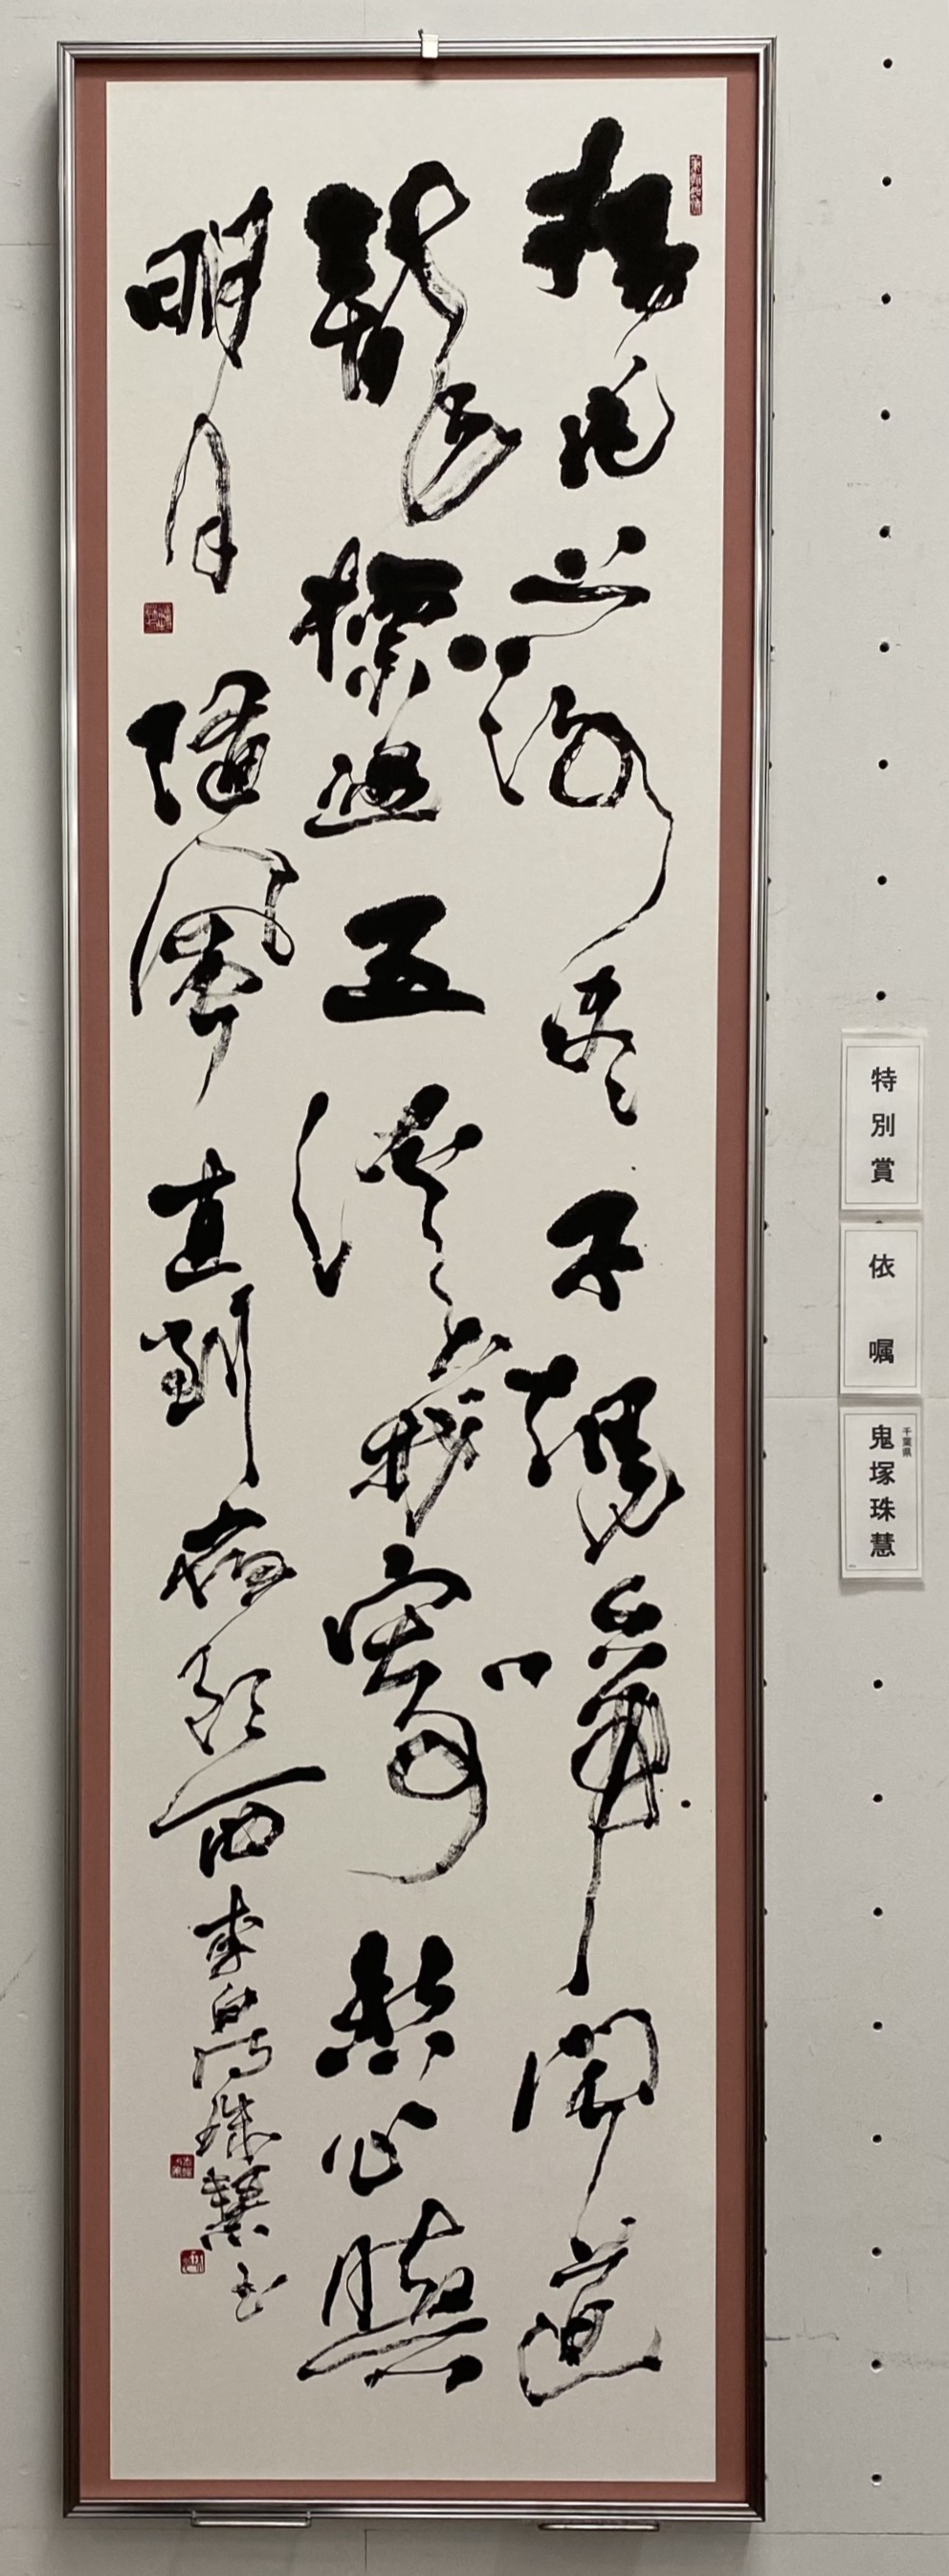 楊花落盡子規啼聞道
龍標過五溪我寄愁心與
明月隨風直到夜郎西 李白詩 珠慧書
特別賞
依嘱
千葉県
鬼塚珠慧